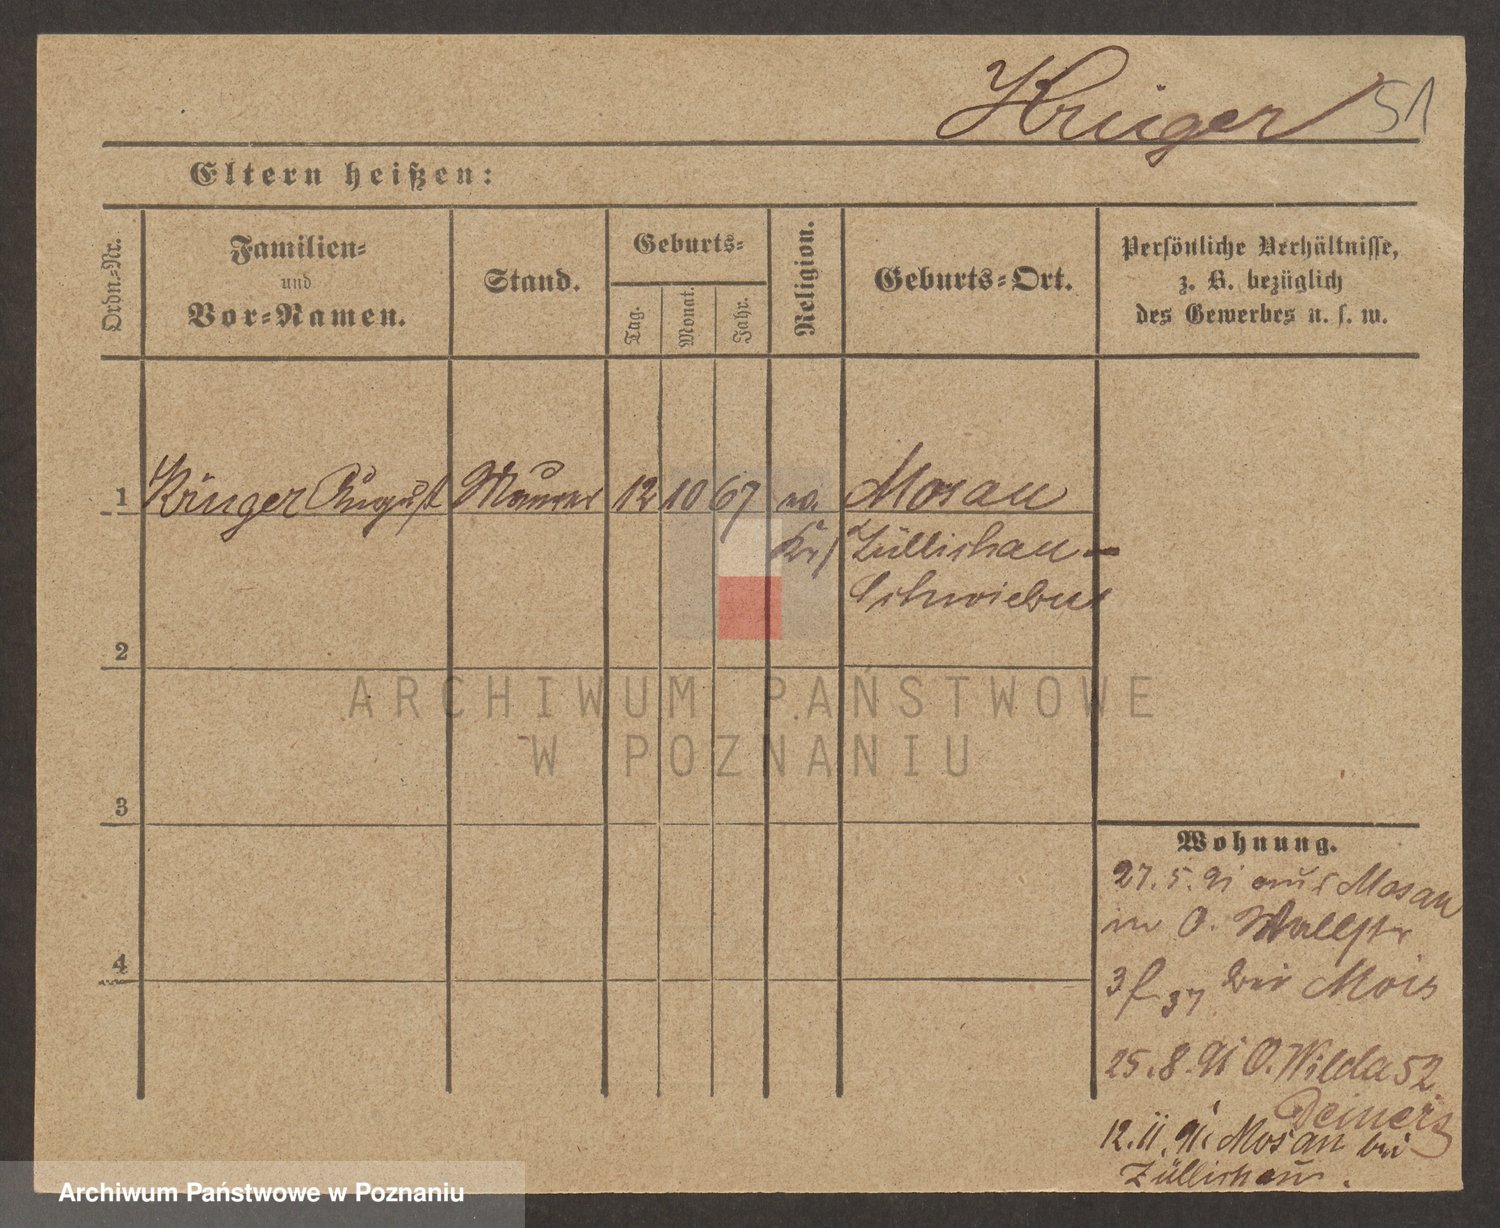 Krüger 51
Eltern heißen:
Ordn.=Nr.
Familien=
und
Vor=Namen.
Stand.
Geburts=
Tag.
Monat.
Jahr.
Religion.
Geburts=Ort.
Persönliche Verhältnisse,
z. B. bezüglich
des Gewerbes u. s. w.
1 Krüger August Maurer 12 10 67 ev. Mosau
Kr. Züllichau-
Schwiebus
2
3
4
Wohnung.
27.5.91 aus Mosau
in O. Wallstr
37 bei
25.8.91 O. Wilda 52
12.11.91. Mosau bei
Züllichau.
ARCHIWUM PAŃSTWOWE
W POZNANIU
Archiwum Państwowe w Poznaniu